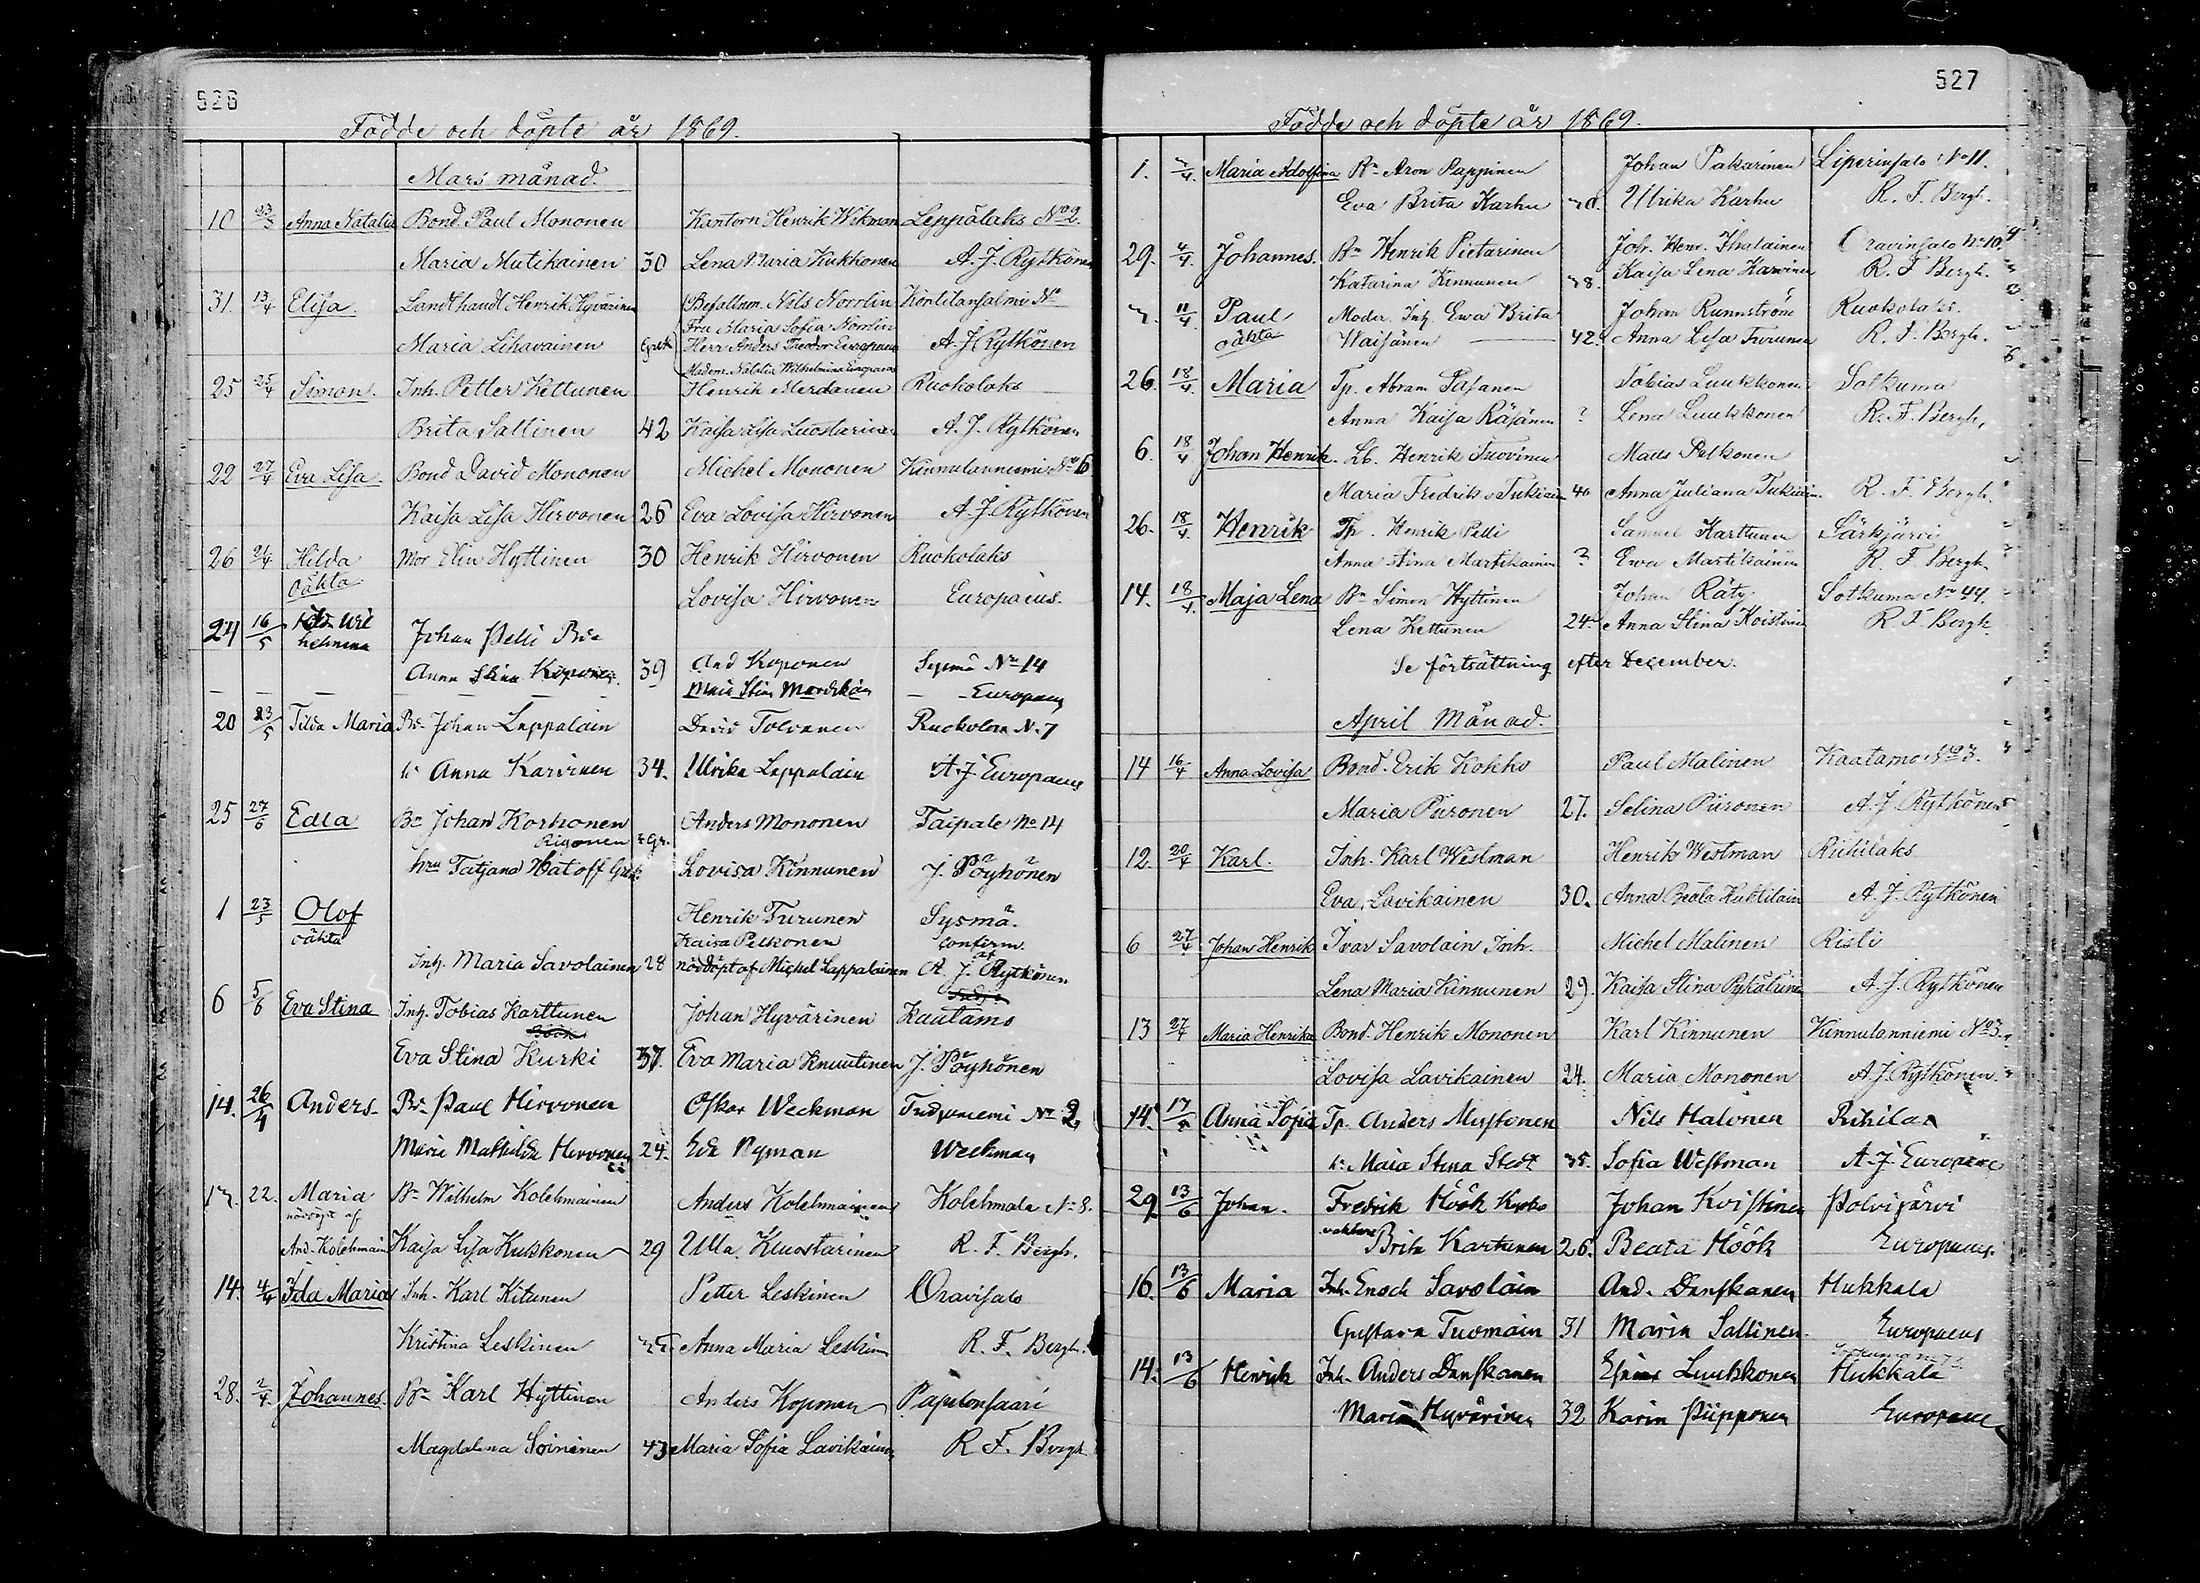 526
Födde och döpte år 1869.
Mars månad.
10 23/3 Anna Natalia Bond. Paul Mononen Kantorn Henrik Wikman Leppälaks No 2.
Maria Mutikainen 30 Lena Maria Kukkonen A. J. Rytkönen
31. 13/4 Elisa. Landthandl Henrik Hyvärinen Befallnm. Nils Norrlin Kontilansalmi No
Fru Maria Sofia Norrlin
Maria Lihavainen Grek Herr Anders Theodor Europaeus A. J. Rytkönen
Madem. Natalia Wilhelmina Europaeus
25 25/4 Simon. Inh. Petter Kettunen Henrik Merdanen Ruokolaks
Brita Sallinen 42 Kaisa Lisa Luostarinen A. J. Rytkönen
22 27/4 Eva Lisa. Bond David Mononen Michel Mononen Kinnulanniemi No 6
Kaisa Lisa Hirvonen 26 Eva Lovisa Hirvonen A. J. Rytkönen
26 21/4 Hilda Mor Elin Hyttinen 30 Henrik Hirvonen Ruokolaks
oäkta Lovisa Hirvonen Europaeus.
24 16/5 Wil
helmina Johan Pelli Bde
Anna Stina Koponen. 39 And Koponen Sysmä No 14
Maia Stina Mardikain Europaeus
20 23/5 Tilda Maria Bd. Johan Leppalain David Tolvanen Ruokolax N. 7
h Anna Karvinen 34. Ulrika Leppalain A. J. Europaeus
25 27/6 Edla Bn Johan Korhonen Anders Mononen Taipale No 14
Rigonen Gr.
hru Tatjana Hatoff Grek. Lovisa Kinnunen J. Pöyhönen
1 23/5 Olof Henrik Turunen Sysmä.
oäkta Kaisa Pelkonen confirm. af
Inh. Maria Savolainen 28 nöddöpt af Michel Lappalainen A. J. Rytkönen
6 5/6 Eva Stina Inh. Tobias Karttunen Johan Hyvärinen Kautamo
Eva Stina Kurki 37. Eva Maria Knuutinen J. Pöyhönen
14. 26/4 Anders Bd. Paul Hirvonen Oskar Weckman No 2,
Maria Mathilda Hirvonen 24. Eda Nyman Weckman
22. Maria Bn Wilhelm Kolehmainen Anders Kolehmainen Kolehmala No 8.
nöddöpt af
And. Kolehmain Kaisa Lisa Kukkonen 29 Ulla Kluostarinen R. F. Bergh.
14. 4/4 Ida Maria Inh. Karl Kitunen Petter Leskinen Oravisalo
Kristina Leskinen Anna Maria Leskinen R. F. Bergh.
28. 2/4. Johannes. Bn Karl Hyttinen Anders Koponen Papelonsaari
Magdalena Soininen 43 Maria Sofia Lavikainen R. F. Bergh
527
Födde och döpte år 1869.
1. Maria Adolfina Bn Aron Pappinen Johan Pakarinen Liperinsalo No 11.
Eva Brita Karhu Ulrika Karhu R. F. Bergh.
29. 4/4 Johannes. Bn Henrik Pietarinen Joh. Henr. Ihalainen Oravinsalo No 10.
Katarina Kinnunen Kaisa Lena Karvinen R. F Bergh.
11/4. Paul Moder. Inh. Ewa Brita Johan Runnström Ruokolaks.
oäkta Waisänen 42. Anna Lisa Turunen R. F. Bergh.
26. 18/4. Maria Tp. Abram Sasanen Tobias Luukkonen Sotkuma
Anna Kaisa Räsänen ? Lena Luukkonen R. F. Bergh.
6. 18/4 Johan Henrik. Lb. Henrik Tuovinen Matts Pelkonen
Maria Fredrika Tukiain 40 Anna Juliana Tukiain. R. F. Bergh.
26. 18/4. Henrik Tp. Henrik Pelli Samuel Karttunen Särkjärvi
Anna Stina Martikainen ? Ewa Martikainen R. F. Bergh
14. 18/4. Maja Lena Bn Simon Hyttinen Johan Räty Sotkuma No 44.
Lena Kettunen 24. Anna Stina Koistinen R. F. Bergh.
Se fortsättning efter December.
April Månad.
14 16/4 Anna Lovisa Bond. Erik Kokko Paul Malinen Kaatamo No 3.
Maria Piironen 27. Selina Piironen A. J. Rytkönen
12. 20/4 Karl. Inh. Karl Westman Henrik Westman Riihilaks
Eva Lavikainen 30. Anna Beata Huktilain A. J. Rytkönen
6 27/4 Johan Henrik Ivar Savolain Inh. Michel Malinen Risti
Lena Maria Kinnunen 29. Kaisa Stina Pykäläinen A. J. Rytkönen
13 27/4 Maria Henrika Bond. Henrik Mononen Karl Kinnunen Kinnulanniemi No 3.
Lovisa Lavikainen 24. Maria Mononen A. J. Rytkönen.
14. Anna Sofia Tp. Anders Mustonen Nils Halonen Riihilax
h. Maia Stina Stedt 35. Sofia Westman A. J. Europaeus
29. 13/6 Johan. Fredrik Höök Johan Koistinen Polvijärvi
Brita Kartunen 26. Beata Höök Europaeus.
16. 13/6 Maria Inh. Enoch Savolain And. Danskanen Hukkala
Gustava Tuomain 31 Maria Sallinen. Europaeus
14. 13/6 Henrik Inh. Anders Danskanen Luukkonen Hukkala
Maria Hyvärinen 32 Karin Piipponen Europaeus